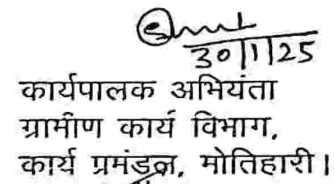 30/1/25
कार्यपालक अभियंता
ग्रामीण कार्य विभाग,
कार्य प्रमंडल, मोतिहारी।